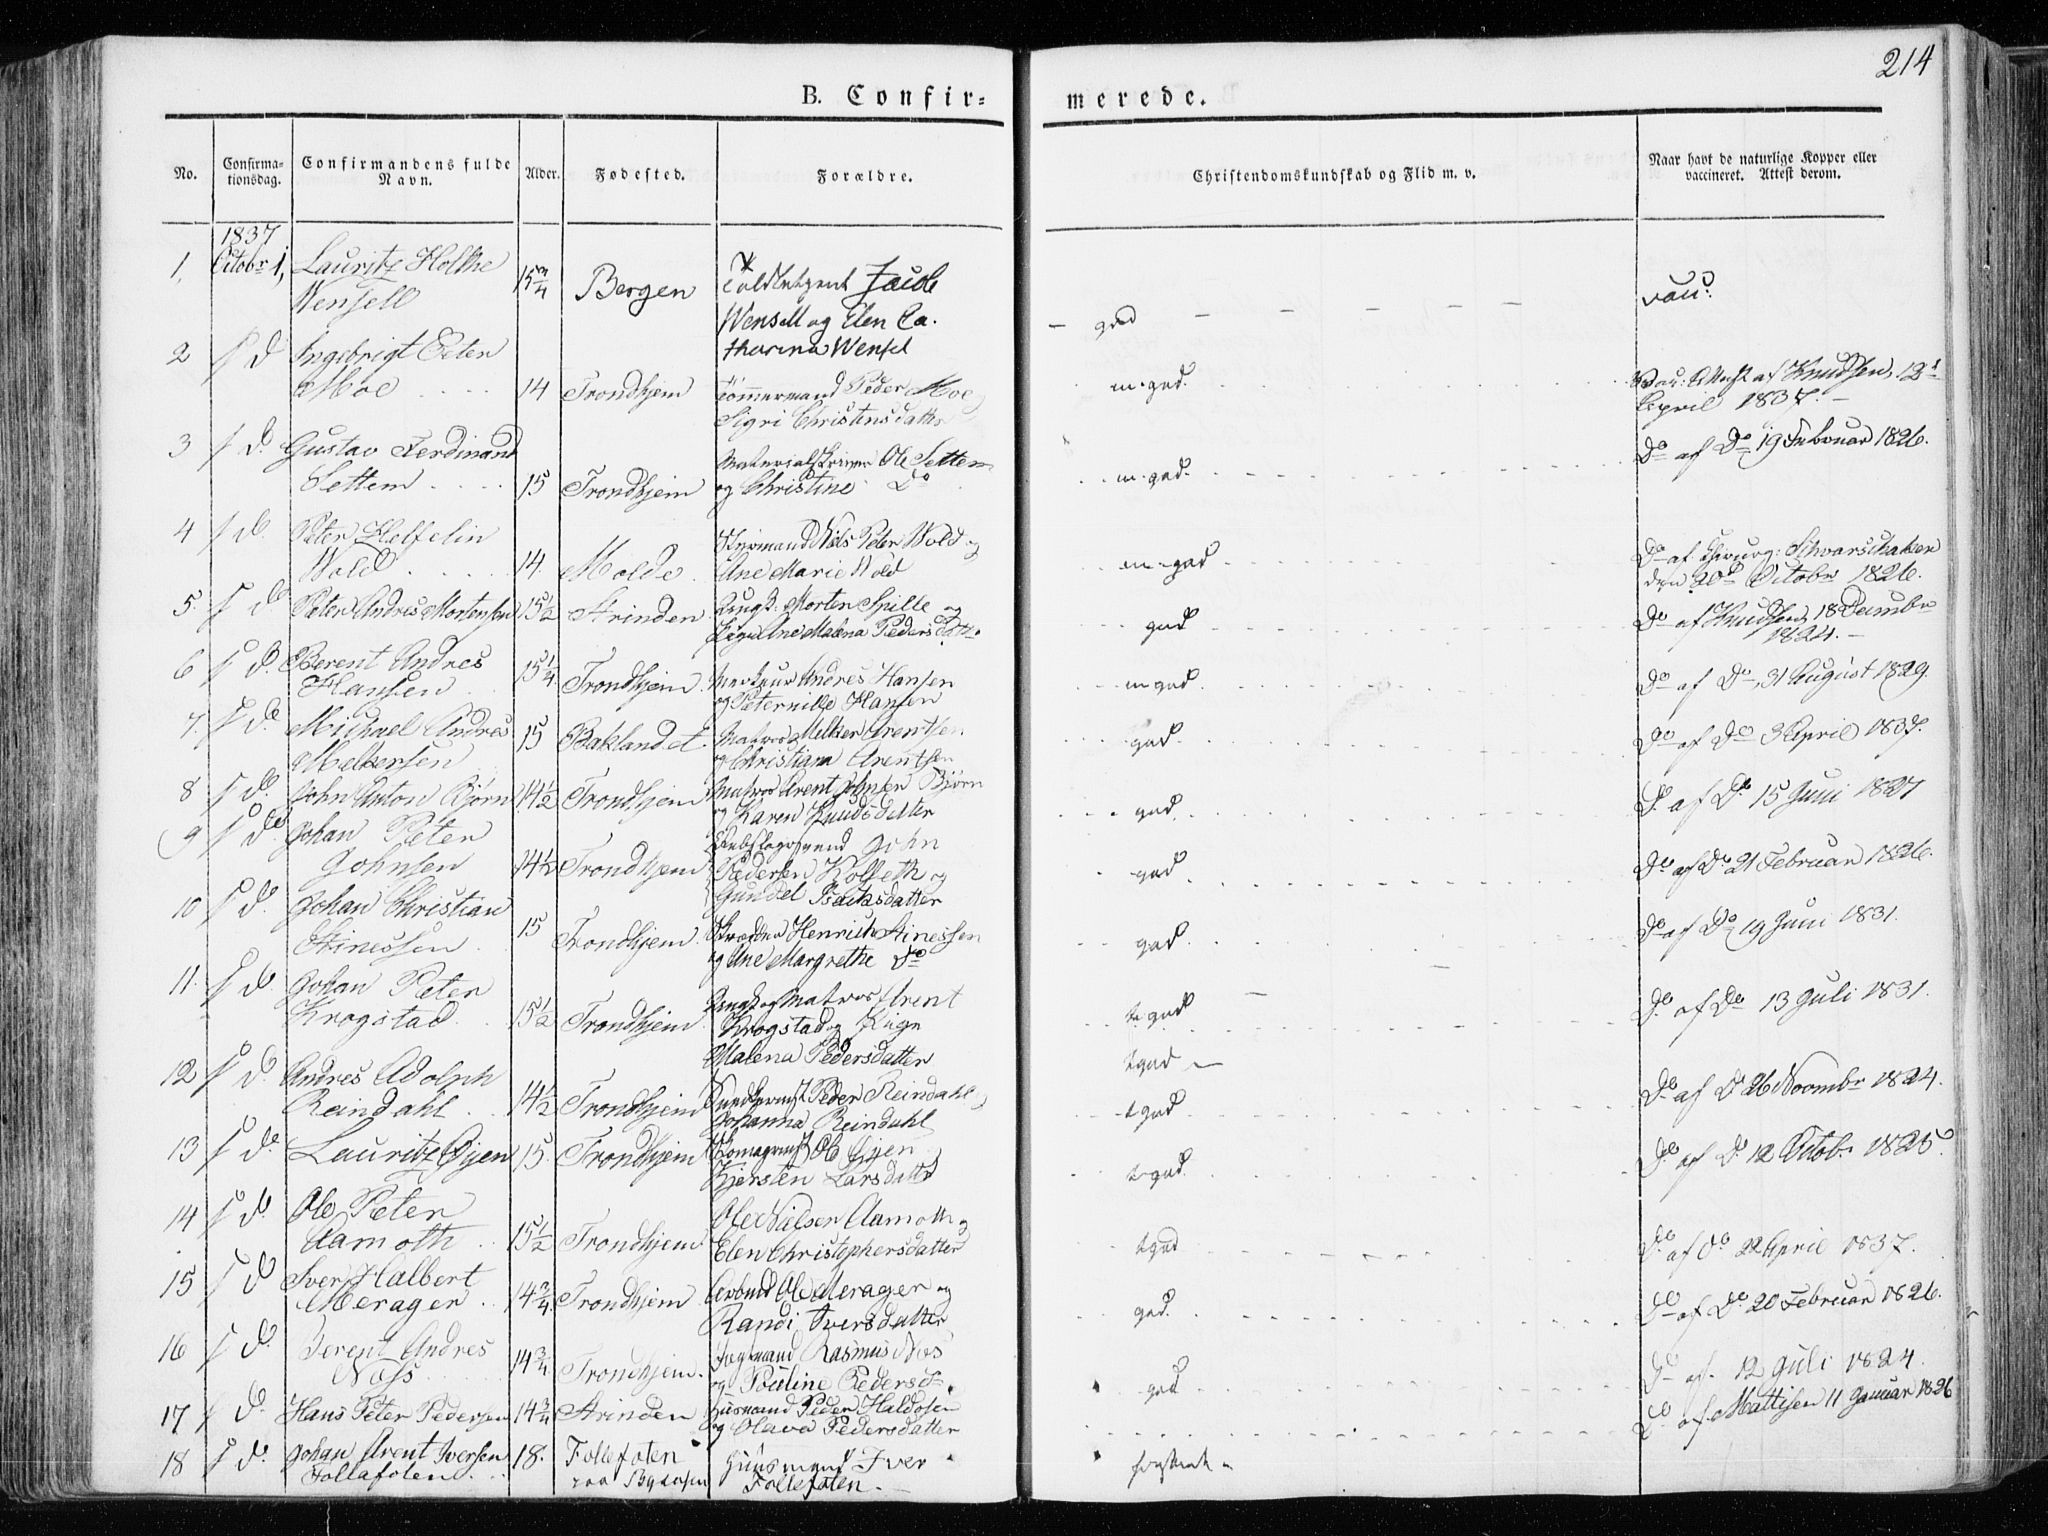 214
B. Confir-
merede.
No.
Confirma-
tionsdag.
Confirmandens fulde
Navn.
Alder.
Fødested.
Forældre.
Christendomskundskab og Flid m. v.
Naar havt de naturlige Kopper eller
vaccineret. Attest derom.
1837
1. Octobr 1, Lauritz Holthe
Wensell 15 3/4 Bergen
Wensell og Elen Ca-
tharina Wensel
god
vacc:
2 Ingebrigt Peter
Moe 14 Trondhjem Tømmermand Peder Moe
Sigri Christensdatter
m. god.
Vac: Attest af Knudsen, 12t
April 1837.
3 Do Gustav Ferdinand
Settem 15 Trondhjem Materialskriver Ole Settem
og Christine Do
m. god.
Do af Do 19 Februar 1826.
4 Do Peter
Wold 14. Molde Styrmand Niels Peter Wold og
Ane Marie Wold
m. god
Do af Chirurg: Schvarschaken
den 20de October 1826.
5. Do Peter Andres Mortensen 15 1/2 Strinden Ungk: Morten Spille og
Pige Ane Malena Pedersdatter
god
Do af Knudsen, 18 Decembr
1824.
6 Do Berent Andres
Hansen 15 1/4 Trondhjem Andres Hansen
og Peternille Hansen
m god
Do af Do, 31 August 1829.
7. Do Michael Andres
Melkersen 15 Baklandet Matros Melker Arentsen
og Christiana Arentsen
god
Do af Do 3 April 1837.
8 Do John Anton Bjørn 14 1/2 Trondhjem Matros Arent Johnsen Bjørn
og Karen Knudsdatter
god
Do af Do 15 Juni 1827
9 Do Johan Peter
Johnsen 14 1/2 Trondhjem John
Pedersen Kolseth og
Gundel Isacksdatter
god
Do af Do 21 Februar 1826.
10 Do Johan Christian
Stinessen 15 Trondhjem Skræder Henrich Stinessen
og Ane Margrethe Do
god
Do af Do 19 Juni 1831.
11. Do Johan Peter
Krogstad 15 1/2 Trondhjem Ungk. og Matros Arent
Krogstad og Pige
Malena Pedersdatter
t god
Do af Do 13 Juli 1831.
12 Do Andres Adolph
Reindahl 14 1/2 Trondhjem Peder Reindahl,
Johanna Reindahl
tgod
t god
Do af Do 26 Novembr 1824.
13 Do Lauritz Øyen 15. Trondhjem Ole Øyen
Kjersten Larsdatter
t-god
Do af Do 12 Octobr 1825.
14 Do Ole Peter
Aamoth 15 1/2 Trondhjem Ole Nielsen Aamoth og
Elen Christophersdatter
tgod
Do af Do 22 April 1837.
15 Do Iver Halbert
Merager 14 3/4 Trondhjem Ole Merager og
Randi Iversdatter
god
Do af Do 20 Februar 1826.
16 Do Berent Andres
Næss 14 3/4 Trondhjem. Rasmus Næs
og Pouline Pedersd.
god
Do af 12 Juli 1824.
17 Do Hans Peter Pedersen 14 3/4 Strinden Husmand Peder Haldosen
og Olava Pedersdatter
Do af Mattisen 11 Januar 1826
18 Do Johan Arent Iversen
Follafoten 18. Follefoten
paa Byaasen Huusmand Iver
Follefoten.